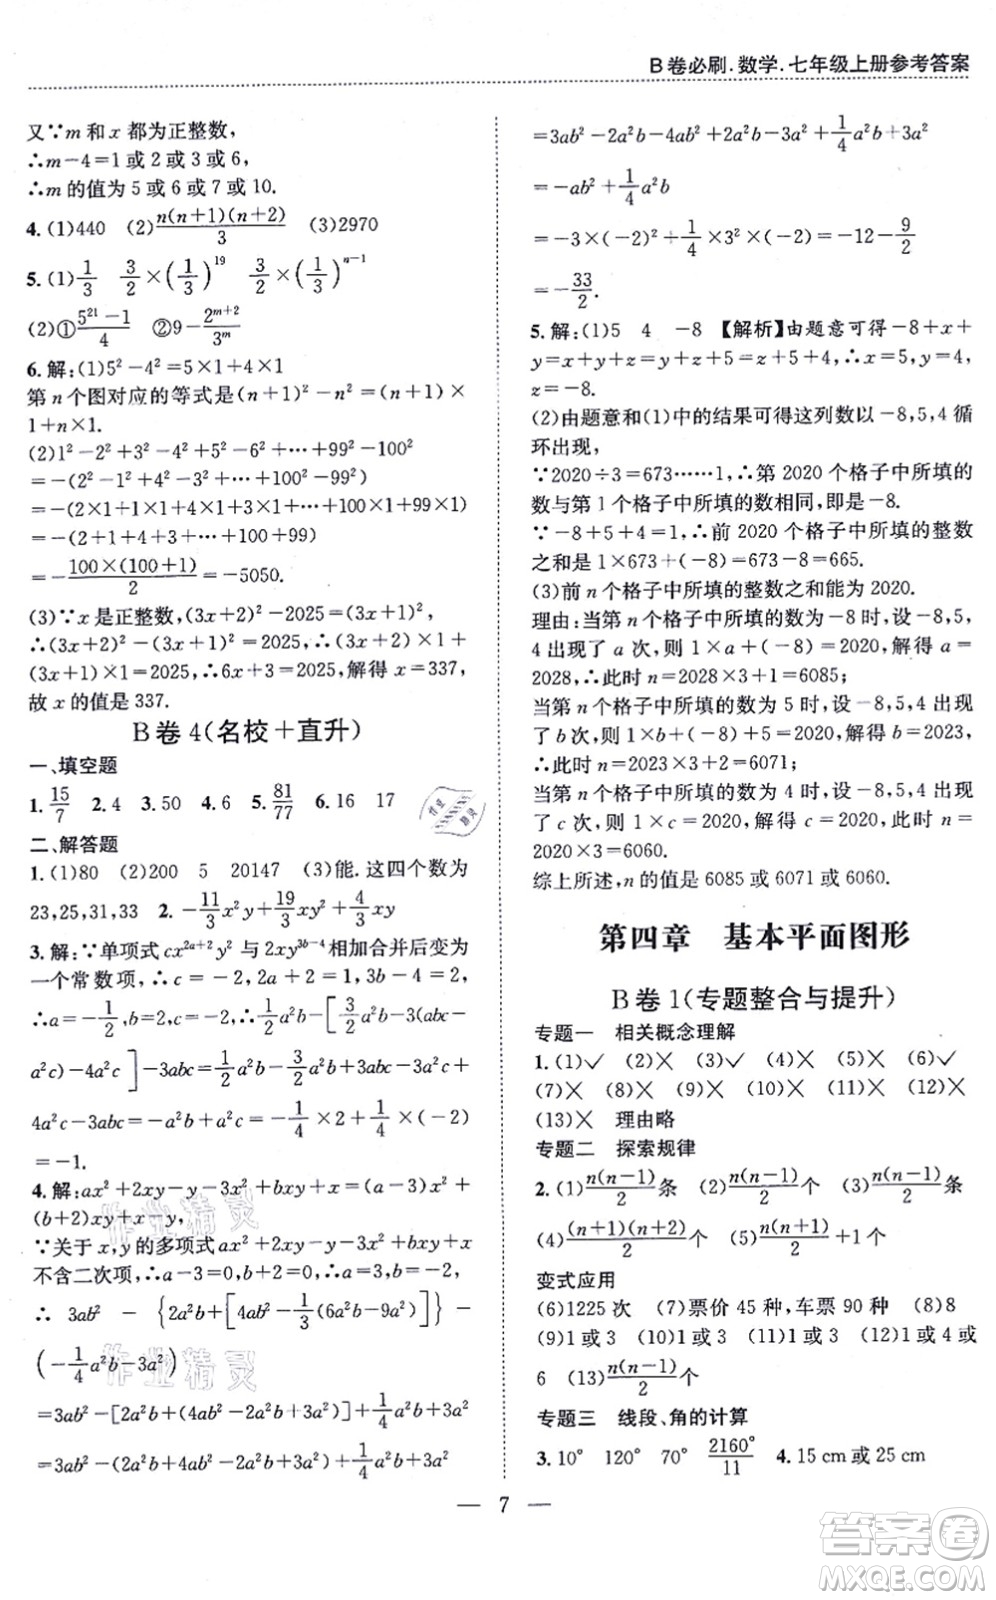 B卷必刷.数学.七年级上册参考答案
又∵m 和 x 都为正整数,
∴m-4=1 或 2 或 3 或 6,
∴m 的值为 5 或 6 或 7 或 10.
4. (1)440 (2)n(n+1)(n+2)/3 (3)2970
5. (1)1/3 3/2×(1/3)^19 3/2×(1/3)^(n-1)
(2)①(5^21-1)/4 ②9-2^(m+2)/3^m
6. 解:(1)5²-4²=5×1+4×1
第 n 个图对应的等式是(n+1)²-n²=(n+1)×
1+n×1.
(2)1²-2²+3²-4²+5²-6²+…+99²-100²
=-(2²-1²+4²-3²+6²-5²+…+100²-99²)
=-(2×1+1×1+4×1+3×1+…+100×1+99×1)
=-(2+1+4+3+…+100+99)
=-100×(100+1)/2=-5050.
(3)∵x 是正整数,(3x+2)²-2025=(3x+1)²,
∴(3x+2)²-(3x+1)²=2025,∴(3x+2)×1+
(3x+1)×1=2025,∴6x+3=2025,解得 x=337,
故 x 的值是 337.
B 卷 4(名校+直升)
一、填空题
1. 15/7 2. 4 3. 50 4. 6 5. 81/77 6. 16 17
二、解答题
1. (1)80 (2)200 5 20147 (3)能.这四个数为
23,25,31,33 2. -11/3x²y+19/3xy²+4/3xy
3. 解:∵单项式 cx^(2a+2)y² 与 2xy^(3b-4) 相加合并后变为
一个常数项,∴c=-2,2a+2=1,3b-4=2,
∴a=-1/2,b=2,c=-2,∴1/2a²b-[3/2a²b-3(abc-
a²c)-4a²c]-3abc=1/2a²b-3/2a²b+3abc-3a²c+
4a²c-3abc=-a²b+a²c=-1/4×2+1/4×(-2)
=-1.
4. 解:ax²+2xy-y-3x²+bxy+x=(a-3)x²+
(b+2)xy+x-y,
∵关于 x,y 的多项式 ax²+2xy-y-3x²+bxy+x
不含二次项,∴a-3=0,b+2=0,∴a=3,b=-2,
∴ 3ab² - {2a²b+[4ab²-1/3(6a²b-9a²)]} -
(-1/4a²b-3a²)
=3ab²-[2a²b+(4ab²-2a²b+3a²)]+1/4a²b+3a²
=3ab²-(2a²b+4ab²-2a²b+3a²)+1/4a²b+3a²
=3ab²-2a²b-4ab²+2a²b-3a²+1/4a²b+3a²
=-ab²+1/4a²b
=-3×(-2)²+1/4×3²×(-2)=-12-9/2
=-33/2.
5. 解:(1)5 4 -8 【解析】由题意可得-8+x+
y=x+y+z=y+z+5=z+5+4,∴x=4,y=5,
z=-8.
(2)由题意和(1)中的结果可得这列数以-8,5,4 循
环出现,
∵2020÷3=673……1,∴第 2020 个格子中所填的
数与第 1 个格子中所填的数相同,即是-8.
∵-8+5+4=1,∴前 2020 个格子中所填的整数
之和是 1×673+(-8)=673-8=665.
(3)前 n 个格子中所填的整数之和能为 2020.
理由:当第 n 个格子中所填的数为-8 时,设-8,5,
4 出现了 a 次,则 1×a+(-8)=2020,解得 a=
2028,∴此时 n=2028×3+1=6085;
当第 n 个格子中所填的数为 5 时,设-8,5,4 出现
了 b 次,则 1×b+(-8)+5=2020,解得 b=2023,
∴此时 n=2023×3+2=6071;
当第 n 个格子中所填的数为 4 时,设-8,5,4 出现
了 c 次,则 1×c=2020,解得 c=2020,∴此时 n=
2020×3=6060.
综上所述,n 的值是 6085 或 6071 或 6060.
第四章 基本平面图形
B 卷 1(专题整合与提升)
专题一 相关概念理解
1. (1)✓ (2)× (3)✓ (4)× (5)× (6)✓
(7)× (8)× (9)× (10)× (11)× (12)×
(13)× 理由略
专题二 探索规律
2. (1)n(n-1)/2条 (2)n(n-1)/2个 (3)n(n-1)/2条
(4)(n+1)(n+2)/2个 (5)n(n+1)/2+1 个
变式应用
(6)1225 次 (7)票价 45 种,车票 90 种 (8)8
(9)1 或 3 (10)28 (11)1 或 3 (12)1 或 4 或
6 (13)n(n-1)/2个
专题三 线段、角的计算
3. 10° 120° 70° 2160°/11 4. 15 cm 或 25 cm
— 7 —
作业精灵
作业精灵
作业精灵
答案卷
MXQE.COM